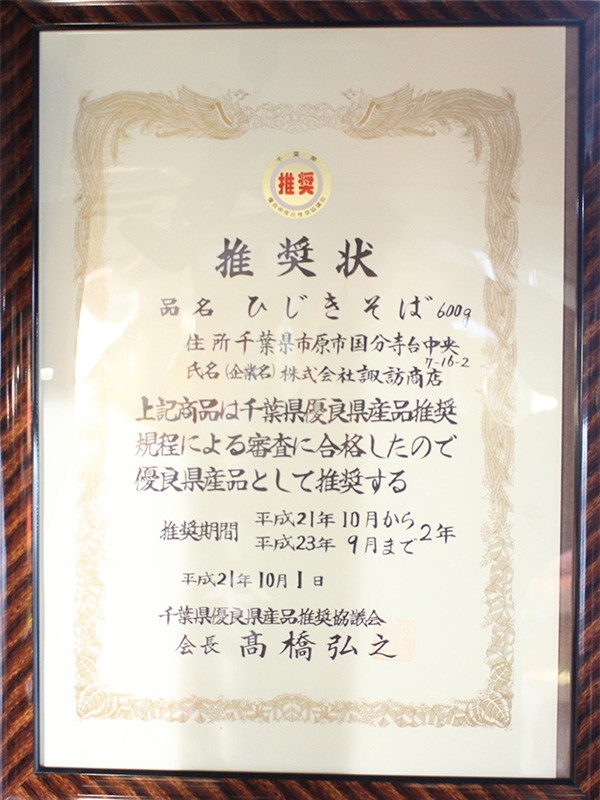 千葉県
推奨
推奨状
品名 ひじきそば600g
住所千葉県市原市国分寺台中央
7-16-2
氏名(企業名)株式会社諏訪商店
上記商品は千葉県優良県産品推奨
規程による審査に合格したので
優良県産品として推奨する
推奨期間 平成21年10月から
平成23年 9月まで 2年
平成21年10月1日
千葉県優良県産品推奨協議会
会長 髙橋弘之